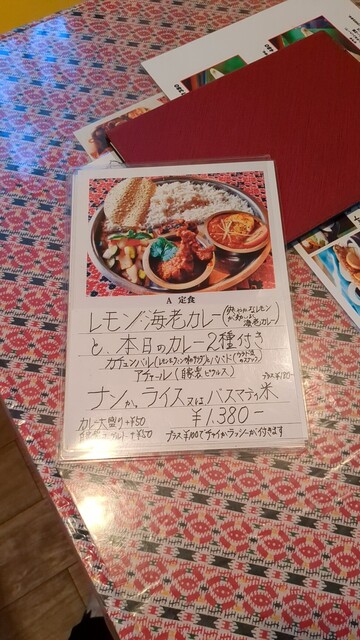 A 定食
レモン海老カレー(レモンが効いた海老カレー)
と、本日のカレー2種付き
カチュンバル(レモンヴィネガサラダ)とパパド
アチャール(自家製ピクルス)
プラス¥180-
ナンか、ライス又はバスマティ米
¥1.380-
カレー大盛り+¥50
プラス¥100でチャイかラッシーが付きます